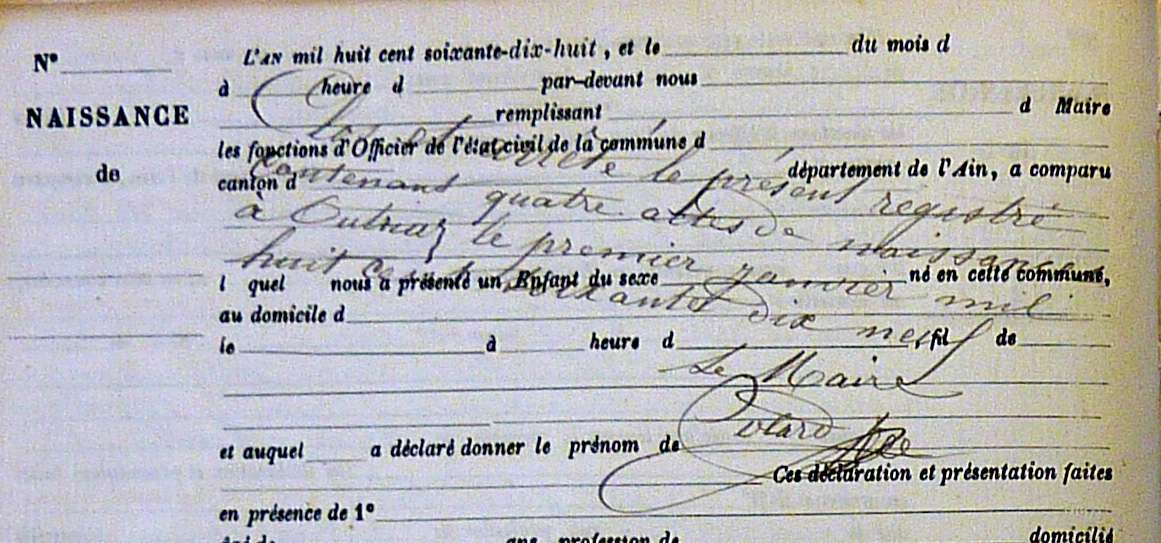 N°
NAISSANCE
de
L'AN mil huit cent soixante-dix-huit, et le du mois d
à heure d par-devant nous
remplissant d Maire
les fonctions d'Officier de l'état civil de la commune d
canton d département de l'Ain, a comparu
l quel nous a présenté un Enfant du sexe né en cette commune,
au domicile d
le à heure d , fil de
et auquel a déclaré donner le prénom de
Ces déclaration et présentation faites
en présence de 1°
âgé de ans, profession de domicilié
Clos et arrêté le présent registre
contenant quatre actes de naissance
à Outriaz le premier janvier mil
huit cent soixante dix neuf
Le Maire